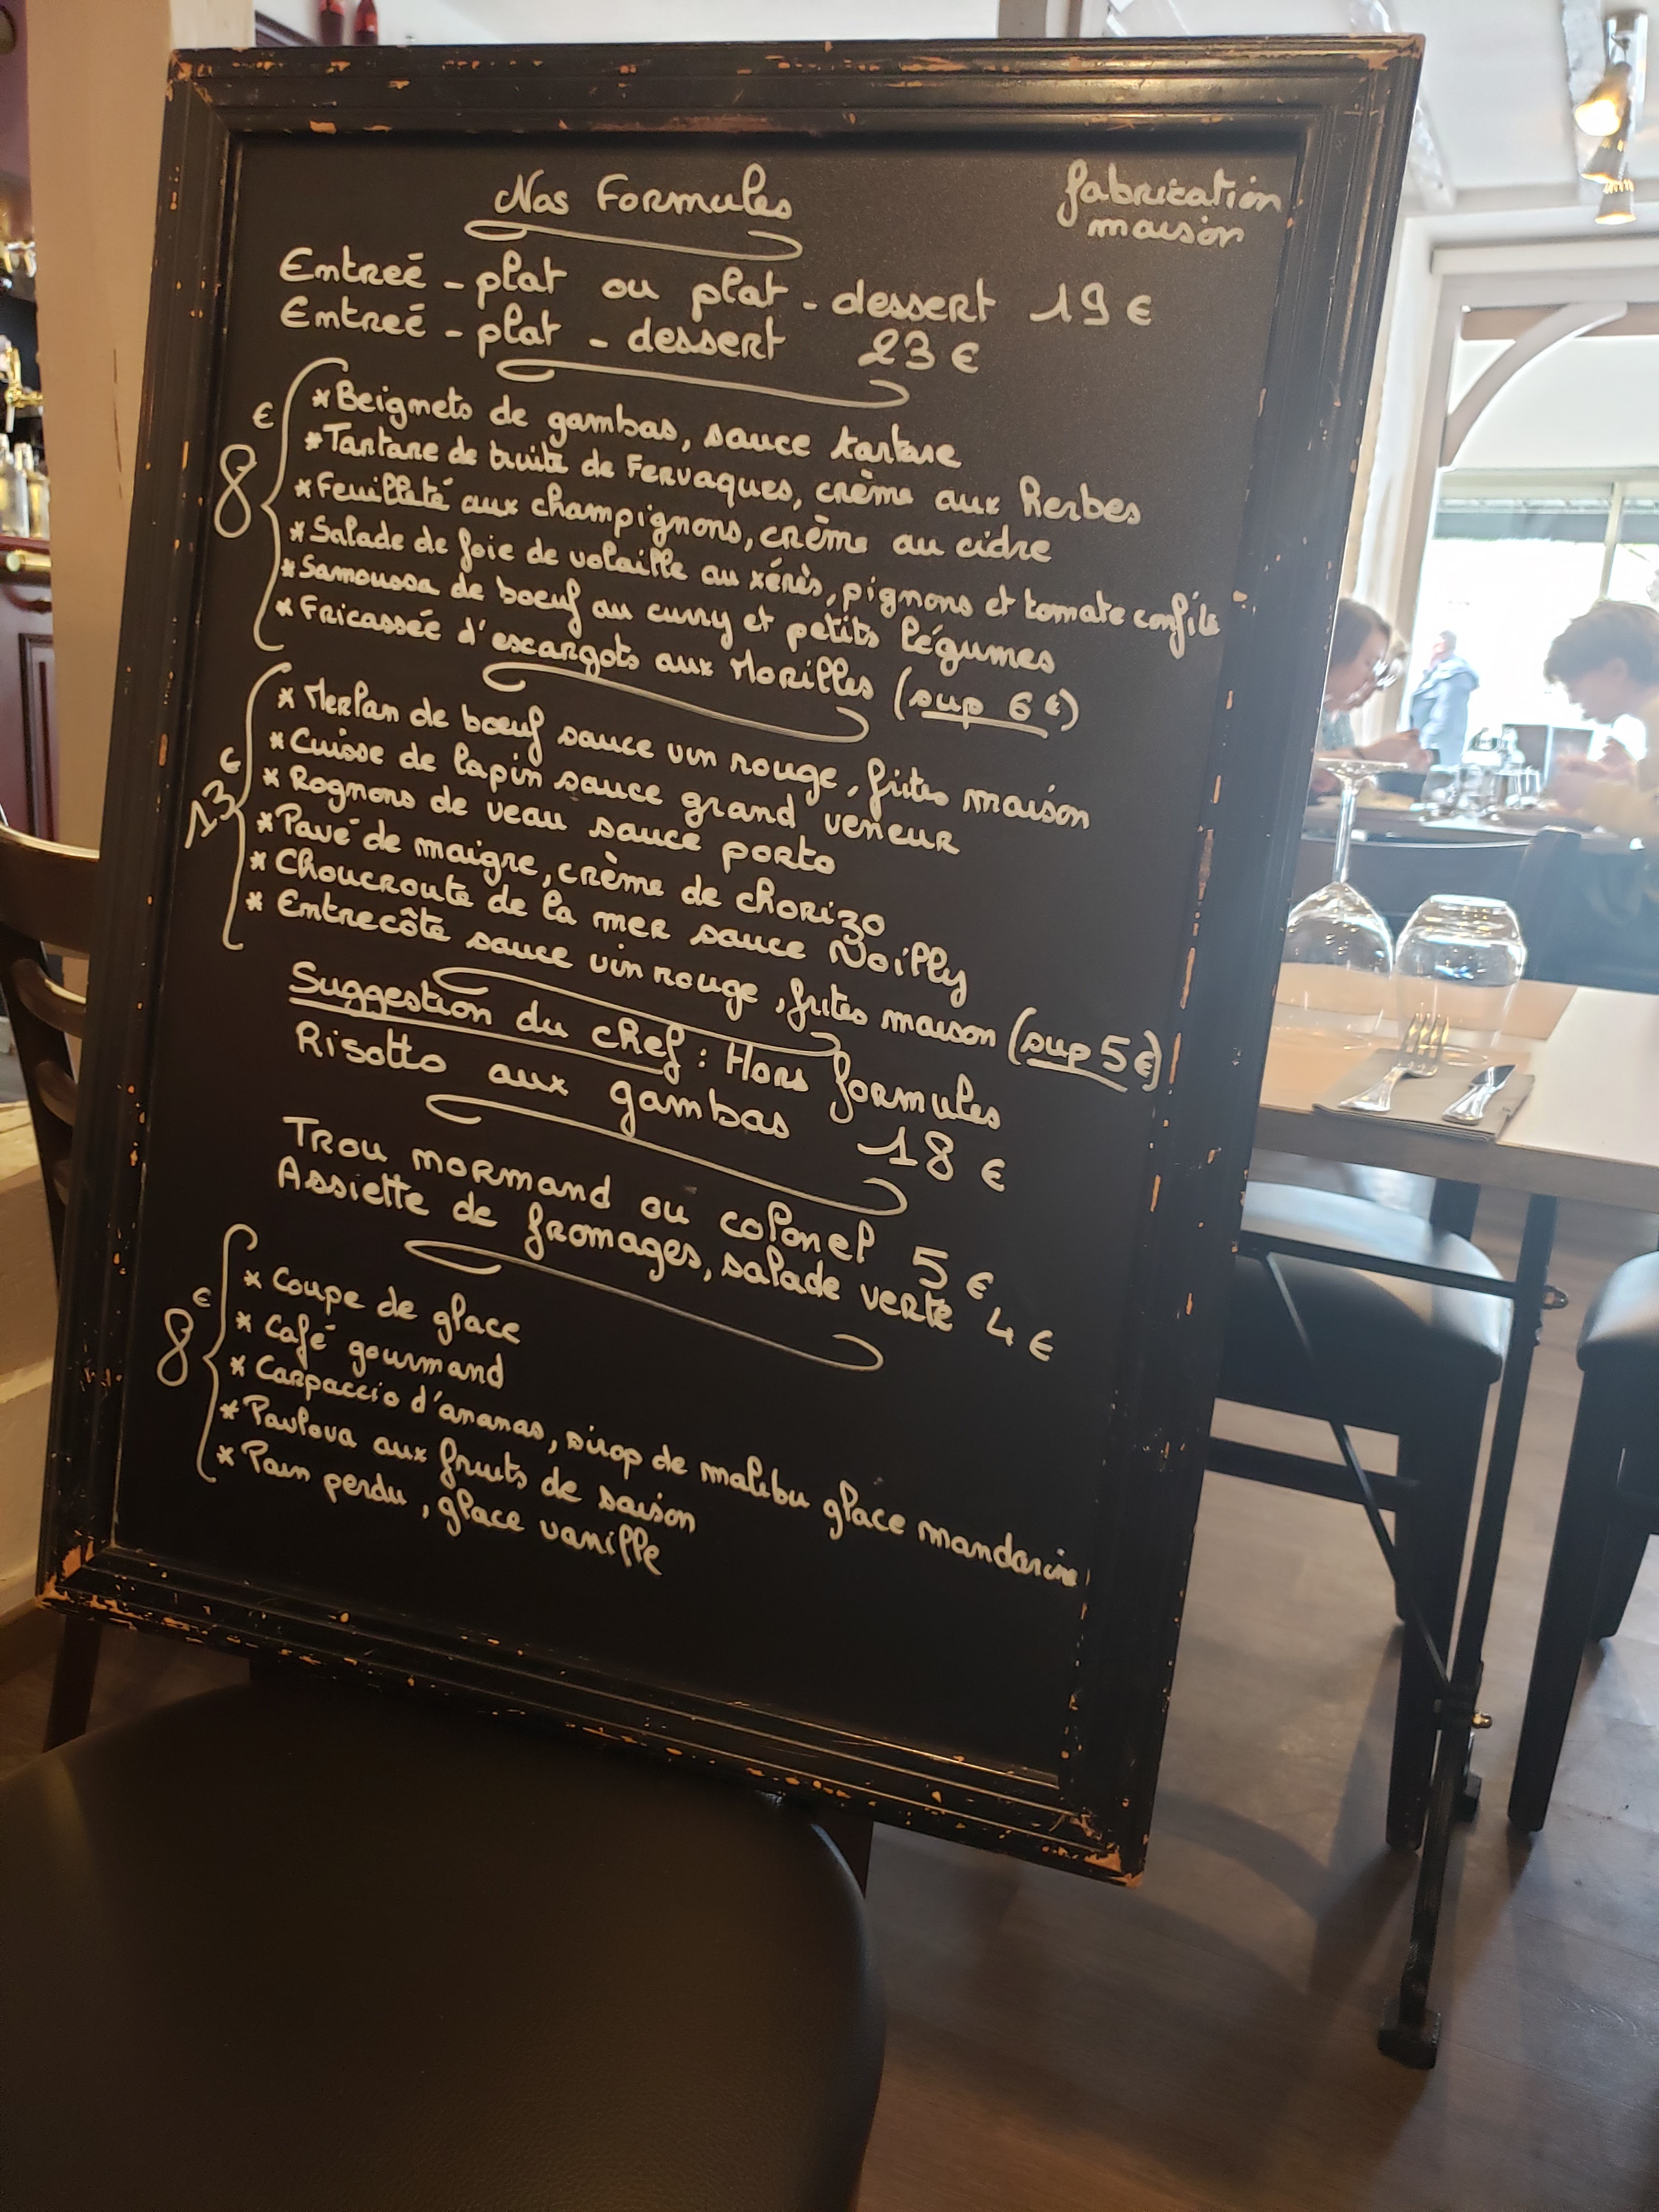 Nos Formules
fabrication
maison
Entreé - plat ou plat - dessert 19 €
Entreé - plat - dessert 23 €
8 €
* Beignets de gambas, sauce tartare
* Tartare de truite de Fervaques, crème aux herbes
* Feuilleté aux champignons, crème au cidre
* Salade de foie de volaille au xérès, pignons et tomate confite
* Samoussa de boeuf au curry et petits légumes
* Fricassée d'escargots aux Morilles (sup 6 €)
13 €
* Merlan de bœuf sauce vin rouge, frites maison
* Cuisse de lapin sauce grand veneur
* Rognons de veau sauce porto
* Pavé de maigre, crème de chorizo
* Choucroute de la mer sauce Noilly
* Entrecôte sauce vin rouge, frites maison (sup 5 €)
Suggestion du chef : Hors formules
Risotto aux gambas 18 €
Trou normand ou colonel 5 €
Assiette de fromages, salade verte 4 €
8 €
* Coupe de glace
* Café gourmand
* Carpaccio d'ananas, sirop de malibu glace mandarine
* Pavlova aux fruits de saison
* Pain perdu, glace vanille